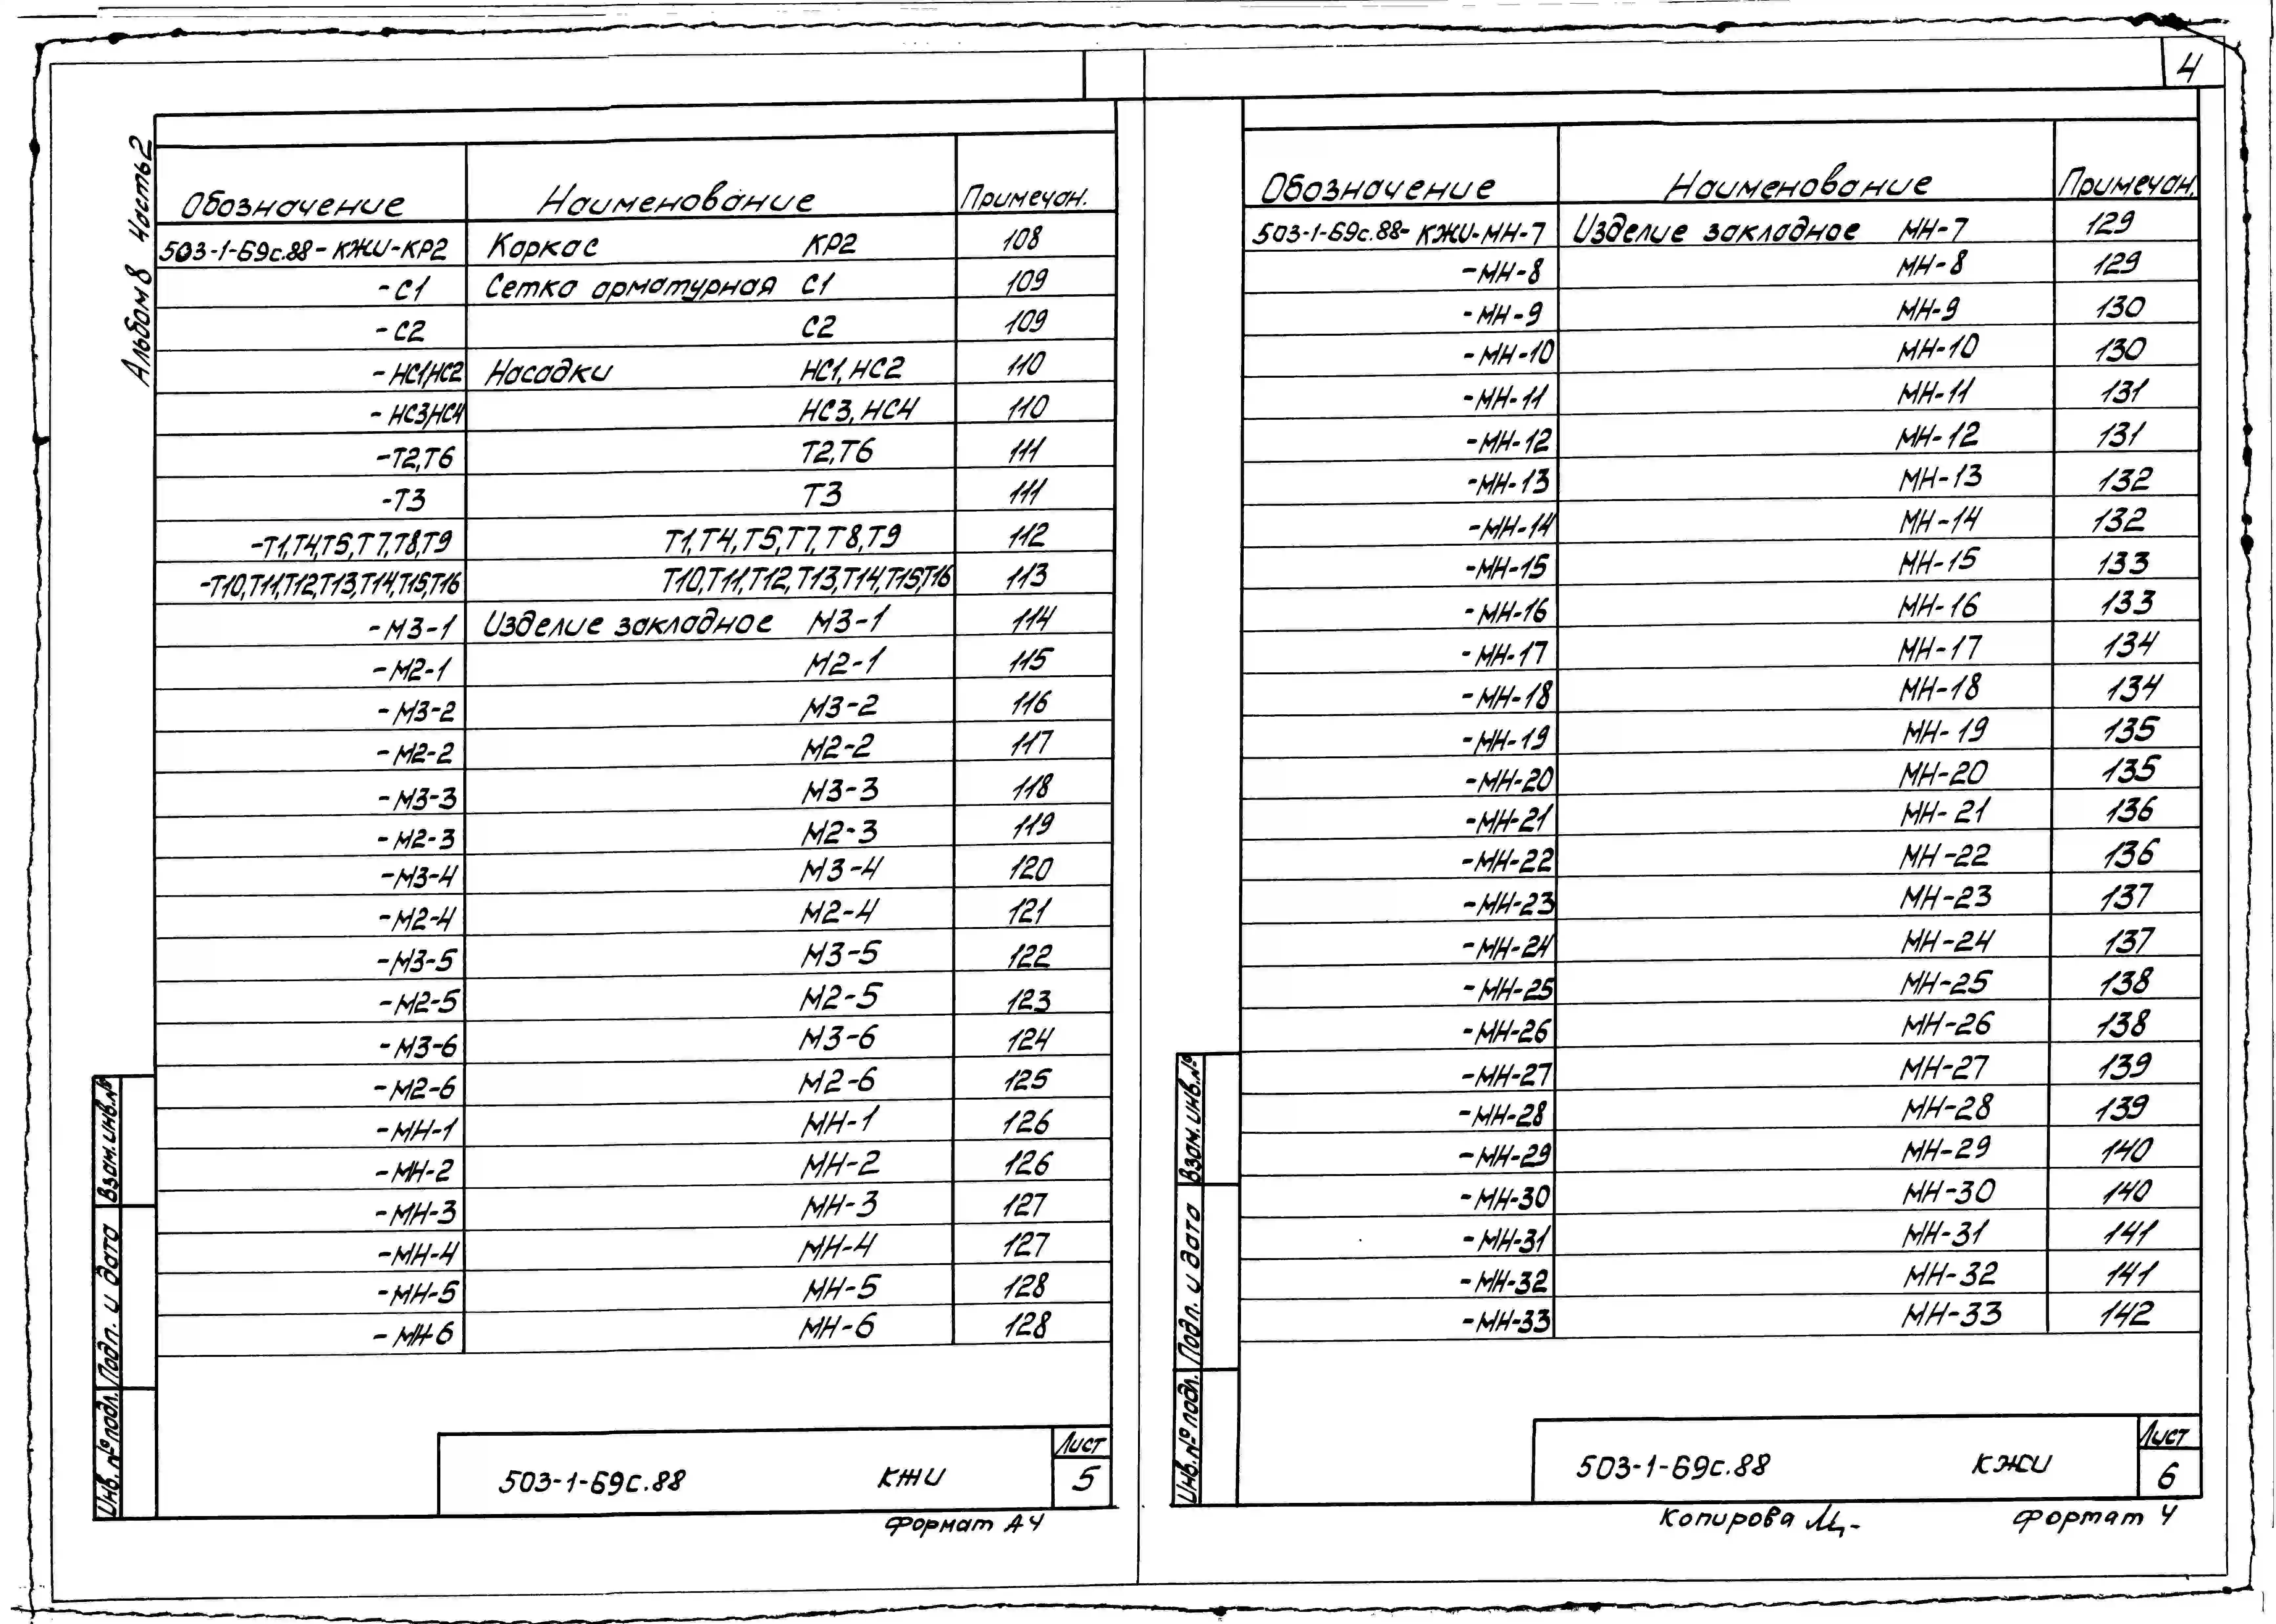 4
Альбом 8 Часть 2
Обозначение Наименование Примечан.
503-1-69с.88-КЖИ-КР2 Каркас КР2 108
-С1 Сетка арматурная С1 109
-С2 С2 109
-НС1,НС2 Насадки НС1, НС2 110
-НС3,НС4 НС3, НС4 110
-Т2,Т6 Т2,Т6 111
-Т3 Т3 111
-Т1,Т4,Т5,Т7,Т8,Т9 Т1,Т4,Т5,Т7,Т8,Т9 112
-Т10,Т11,Т12,Т13,Т14,Т15,Т16 Т10,Т11,Т12,Т13,Т14,Т15,Т16 113
-М3-1 Изделие закладное М3-1 114
-М2-1 М2-1 115
-М3-2 М3-2 116
-М2-2 М2-2 117
-М3-3 М3-3 118
-М2-3 М2-3 119
-М3-4 М3-4 120
-М2-4 М2-4 121
-М3-5 М3-5 122
-М2-5 М2-5 123
-М3-6 М3-6 124
-М2-6 М2-6 125
-МН-1 МН-1 126
-МН-2 МН-2 126
-МН-3 МН-3 127
-МН-4 МН-4 127
-МН-5 МН-5 128
-МН-6 МН-6 128
Взам. инв. №
Подп. и дата
Инв. № подл.
503-1-69с.88 КЖИ
Лист
5
Формат А4
Обозначение Наименование Примечан.
503-1-69с.88-КЖИ-МН-7 Изделие закладное МН-7 129
-МН-8 МН-8 129
-МН-9 МН-9 130
-МН-10 МН-10 130
-МН-11 МН-11 131
-МН-12 МН-12 131
-МН-13 МН-13 132
-МН-14 МН-14 132
-МН-15 МН-15 133
-МН-16 МН-16 133
-МН-17 МН-17 134
-МН-18 МН-18 134
-МН-19 МН-19 135
-МН-20 МН-20 135
-МН-21 МН-21 136
-МН-22 МН-22 136
-МН-23 МН-23 137
-МН-24 МН-24 137
-МН-25 МН-25 138
-МН-26 МН-26 138
-МН-27 МН-27 139
-МН-28 МН-28 139
-МН-29 МН-29 140
-МН-30 МН-30 140
-МН-31 МН-31 141
-МН-32 МН-32 141
-МН-33 МН-33 142
Взам. инв. №
Подп. и дата
Инв. № подл.
503-1-69с.88 КЖИ
Лист
6
Копирова формат 4